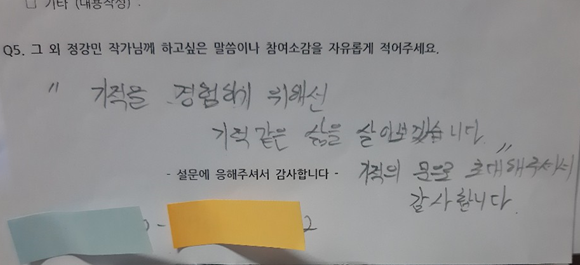 □ 기타 (내용작성) :
Q5. 그 외 정강민 작가님께 하고싶은 말씀이나 참여소감을 자유롭게 적어주세요.
" 기적을 경험하기 위해선
기적 같은 삶을 살아보겠습니다. "
- 설문에 응해주셔서 감사합니다 - 기적의 문으로 초대해주셔서
감사합니다.
- 2